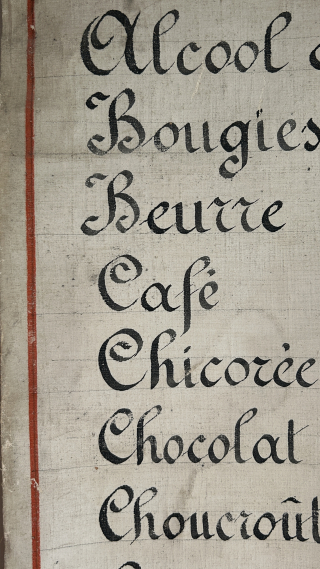 Alcool
Bougies
Beurre
Café
Chicorée
Chocolat
Choucroût